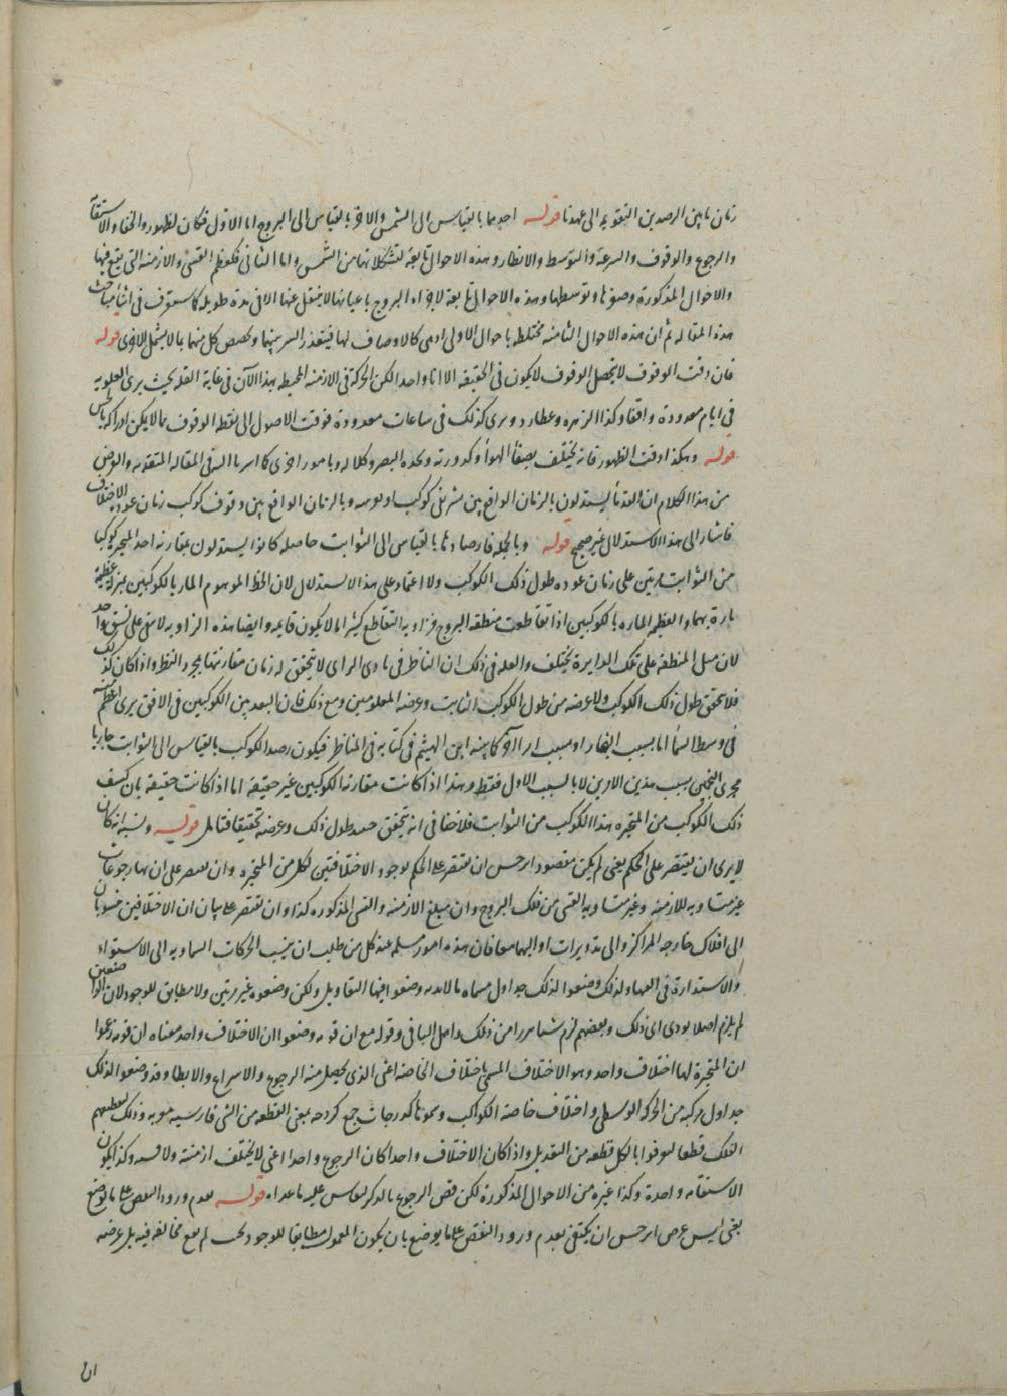 زمان ما بين الرصدين القديم الى عهدنا قوله احدهما بالقياس الى الشمس والاخر بالقياس الى البروج اما الاول فكان لظهور والخفاء والاستقامة
والرجوع والوقوف والسرعة والتوسط والابطاء وهذه الاحوال تابعة لتشكلاتها من الشمس واما الثانى فكعظم القسى والازمنة التى يقع فيها
والاحوال المذكورة وصغرها وتوسطها وهذه الاحوال تابعة لاجزاء البروج باعيانها لا ينتقل عنها الا فى مدة طويلة كا ستعرف فى اثناء مباحث
هذه المقاله ثم ان هذه الاحوال الثامنه مختلطه باحوال الاولى اذ هى كالاوصاف لها فيتعذر التمييز بينهما وتخصيص كل منهما بما لا يشمل الاخرى قوله
فان وقت الوقوف لا يحصل الوقوف لا يكون فى الحقيقه الا انا واحدا لكن الحركة فى الازمنه المحيطه بهذا الآن فى غاية القله بحيث يرى العلويه
فى ايام معدودة واقفا وكذا الزهره وعطارد ويرى كذلك فى ساعات معدودة فوقت الوصول الى نقطه الوقوف مما لا يمكن ادراكه بالحس
قوله وهكذا وقت الظهور فانه يختلف بصفاء الهواء وكدورته وبحدة البصر وكلاله وبامور اخرى كا اشرنا اليه فى المقاله المتقدمه والغرض
من هذا الكلام ان القدماء يستدلون بالزمان الواقع بين تشريقى كوكب او وبالزمان الواقع بين وقوفى كوكب زمان عودة الاختلاف
فاشار الى هذا الاستدلال غير صحيح قوله وبالجمله فارصادها بالقياس الى الثوابت حاصله كانوا يستدلون بمقارنه احد المتحيرة كوكبا
من الثوابت مرتين على زمان عوده طول ذلك الكوكب ولا اعتماد على هذا الاستدلال لان الخط الموهوم المار بالكوكبين بمنزلة عظيمة
مارة بهما والعظم الماره بالكوكبين اذا تقاطعت منطقه البروج فزاويه التقاطع كثيرا ما لا يكون قائمه وايضا هذه الزاويه لا تبقى على نسق واحد
لان ميل المنطقه على تلك الدايرة يختلف والعله فى ذلك ان الناظر فى بادى الراى لا يتحقق له زمان مقارنتها بمجرد النظر واذا كان كذلك
فلا يتحقق طول ذلك الكوكب ولا عرضه من طول الكوكب الثابت وعرضه المعلومين ومع ذلك فان البعد بين الكوكبين فى الافق يرى اعظم منه
فى وسط السماء اما بسبب البخار او بسبب امر آخر كا بينه ابن الهيثم فى كتابه فى المناظر فيكون رصد الكوكب بالقياس الى الثوابت جاريا
مجرى التخمين بسبب هذين الامرين لا بالسبب الاول فقط وهذا اذا كانت مقارنه الكوكبين غير حقيقة اما اذا كانت حقيقة بان كسف
ذلك الكوكب من المتحيره هذا الكوكب من الثوابت فلا خفا فى انه يتحقق حينئذ طول ذلك وعرضه تحقيقا فتامل قوله ونسبه انه كان
لا يرى ان يقتصر على الحكم يعنى لم يكن مقصود ابرخس ان يقتصر على الحكم بوجود الاختلافين لكل من المتحيره وان يقتصر على ان لها رجوعات
غير متساويه للازمنه وغير متساويه القسى من فلك البروج وان مبلغ الازمنه والقسى المذكوره كذا وان يقتصر على بيان ان الاختلافين منسوبان
الى افلاك خارجه المراكز والى تدويرات او اليهما معا فان هذه امور مسلمه عند كل من طلب ان ينسب الحركات السماويه الى الاستواء
والاستدارة فى وضعوا لذلك جداول مسماه وضعوا فيها التقاويل ولكن وضعوه غير مرتين ولا مطابق للوجود لان الواضعين
لم يلزم اصلا يودى اى ذلك وبعضهم لزم شيئا من ذلك واهمل الباقى وقوله مع ان قومه وضعوا ان الاختلاف واحد معناه ان قومه زعموا
ان المتحيرة لها اختلاف واحد وهو الاختلاف المسمى باختلاف الخاصة اعنى الذى يحصل منه الرجوع والاسراع والابطا وقد وضعوا لذلك
جداول مركبه من الحركه الوسطى واختلاف خاصة الكواكب وسموها كردجات جمع كردجه بمعنى القطعه من الشى فارسيه معربه وذلك لتقطيعهم
الفلك قطعا ليعرفوا بالكل قطعه من التعديل واذا كان الاختلاف واحدا كان الرجوع واحدا اعنى لا يختلف ازمنته ولا قسيه وكذا يكون
الاستقامه واحدة وكذا غيره من الاحوال المذكورة لكن خص الرجوع بالذكر ليقاس عليه ما عداه قوله بعدم ورود النقض على ما يوضع
يعنى ليس غرض ابرخس ان يكتفى بعدم ورود النقض على ما يوضع بان يكون المعمول مطابقا للوجود لم يقع مخالفه فيه بل غرضه
ان